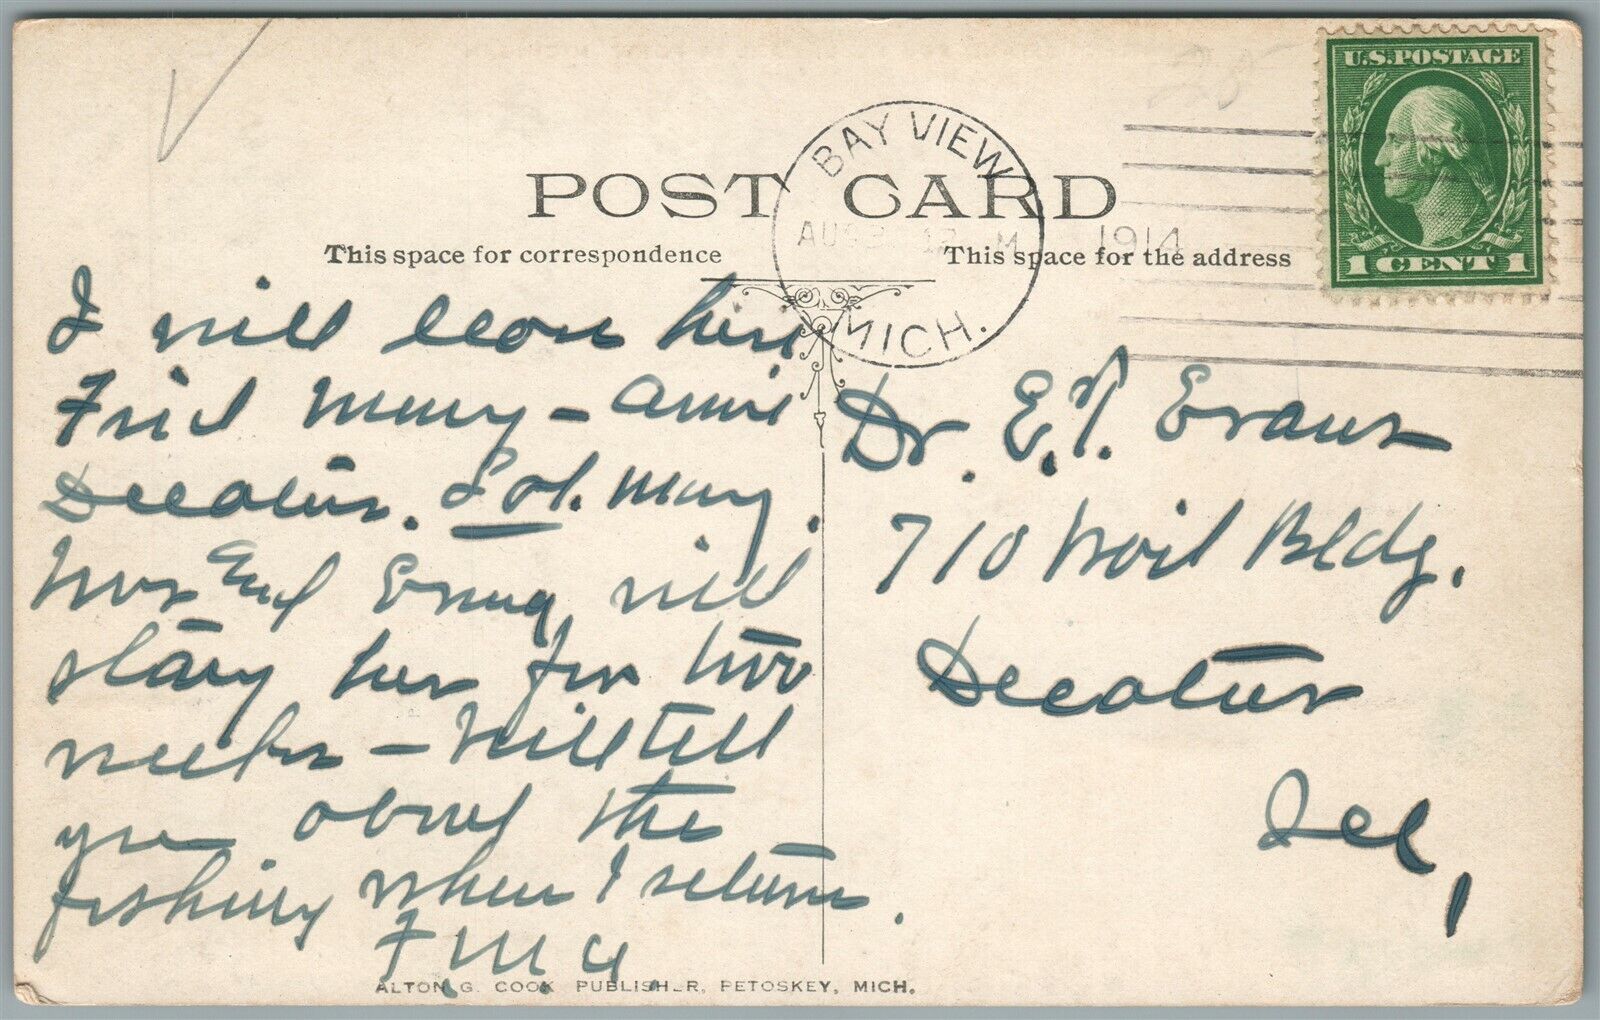 U.S. POSTAGE
1 CENT 1
BAY VIEW
MICH.
1914
POST CARD
This space for correspondence
This space for the address
I will leave here
Frid morny - arrive
Decatur. Sat. morng.
Mrs and will
stay here for two
weeks - Will tell
you about the
fishing when I return.
Dr. E. J. Evans
710 Wait Bldg.
Decatur
Ill,
ALTON G. COOK PUBLISHER, PETOSKEY, MICH.